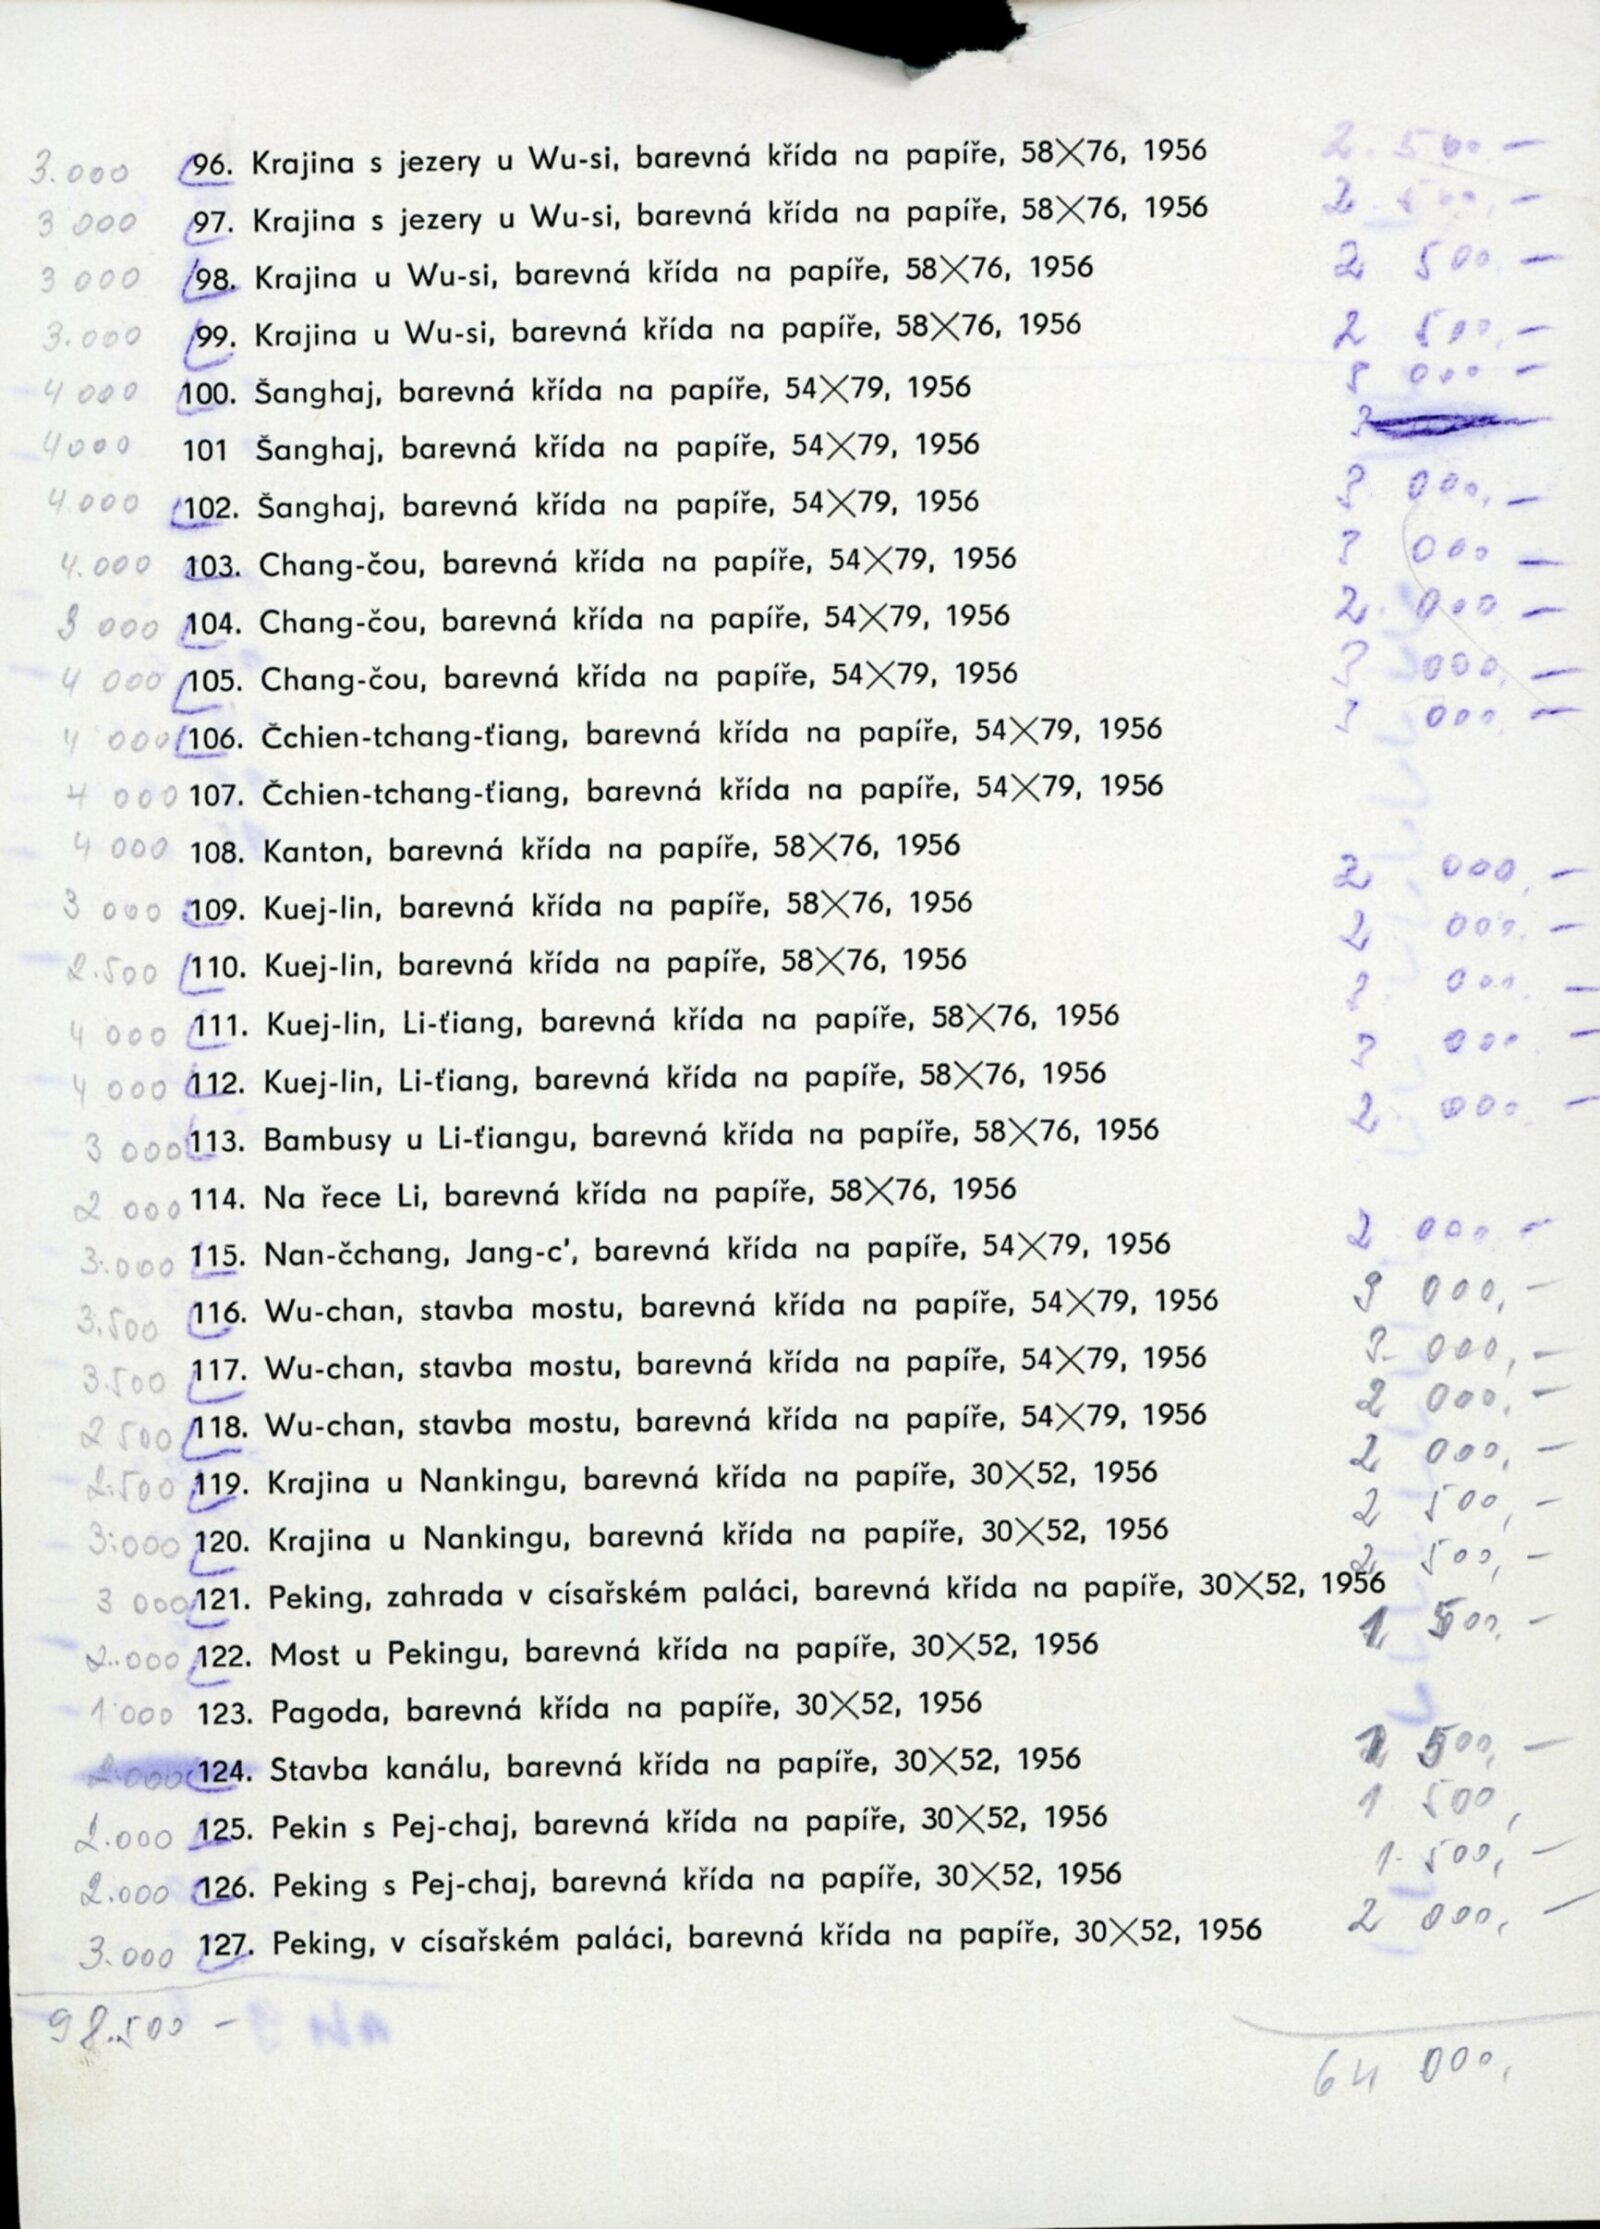 3.000 96. Krajina s jezery u Wu-si, barevná křída na papíře, 58×76, 1956 2.500.—
3 000 97. Krajina s jezery u Wu-si, barevná křída na papíře, 58×76, 1956 2.500,—
3 000 98. Krajina u Wu-si, barevná křída na papíře, 58×76, 1956 2 500 —
3.000 99. Krajina u Wu-si, barevná křída na papíře, 58×76, 1956 2 500,—
4 000 100. Šanghaj, barevná křída na papíře, 54×79, 1956 3 000 —
4000 101 Šanghaj, barevná křída na papíře, 54×79, 1956
4.000 102. Šanghaj, barevná křída na papíře, 54×79, 1956 3 000,—
4.000 103. Chang-čou, barevná křída na papíře, 54×79, 1956 3 000 —
3 000 104. Chang-čou, barevná křída na papíře, 54×79, 1956 2.000 —
4 000 105. Chang-čou, barevná křída na papíře, 54×79, 1956 3 000,—
4 000 106. Čchien-tchang-ťiang, barevná křída na papíře, 54×79, 1956 3 000 —
4 000 107. Čchien-tchang-ťiang, barevná křída na papíře, 54×79, 1956
4 000 108. Kanton, barevná křída na papíře, 58×76, 1956
3 000 109. Kuej-lin, barevná křída na papíře, 58×76, 1956 2 000,—
2.500 110. Kuej-lin, barevná křída na papíře, 58×76, 1956 2 000.—
4 000 111. Kuej-lin, Li-ťiang, barevná křída na papíře, 58×76, 1956 3 000. —
4 000 112. Kuej-lin, Li-ťiang, barevná křída na papíře, 58×76, 1956 3 000 —
3 000 113. Bambusy u Li-ťiangu, barevná křída na papíře, 58×76, 1956 2 000. —
2 000 114. Na řece Li, barevná křída na papíře, 58×76, 1956
3.000 115. Nan-čchang, Jang-c’, barevná křída na papíře, 54×79, 1956 2 000 —
3.500 116. Wu-chan, stavba mostu, barevná křída na papíře, 54×79, 1956 3 000,—
3.500 117. Wu-chan, stavba mostu, barevná křída na papíře, 54×79, 1956 3.000,—
2 500 118. Wu-chan, stavba mostu, barevná křída na papíře, 54×79, 1956 2 000,—
2.500 119. Krajina u Nankingu, barevná křída na papíře, 30×52, 1956 2 000,—
3.000 120. Krajina u Nankingu, barevná křída na papíře, 30×52, 1956 2 500,—
3 000 121. Peking, zahrada v císařském paláci, barevná křída na papíře, 30×52, 1956 2 500,—
2.000 122. Most u Pekingu, barevná křída na papíře, 30×52, 1956 1 500,—
1 000 123. Pagoda, barevná křída na papíře, 30×52, 1956
2.000 124. Stavba kanálu, barevná křída na papíře, 30×52, 1956 1 500,—
2.000 125. Pekin s Pej-chaj, barevná křída na papíře, 30×52, 1956 1 500,
2.000 126. Peking s Pej-chaj, barevná křída na papíře, 30×52, 1956 1.500,—
3.000 127. Peking, v císařském paláci, barevná křída na papíře, 30×52, 1956 2 000,—
98.500 —
64 000,